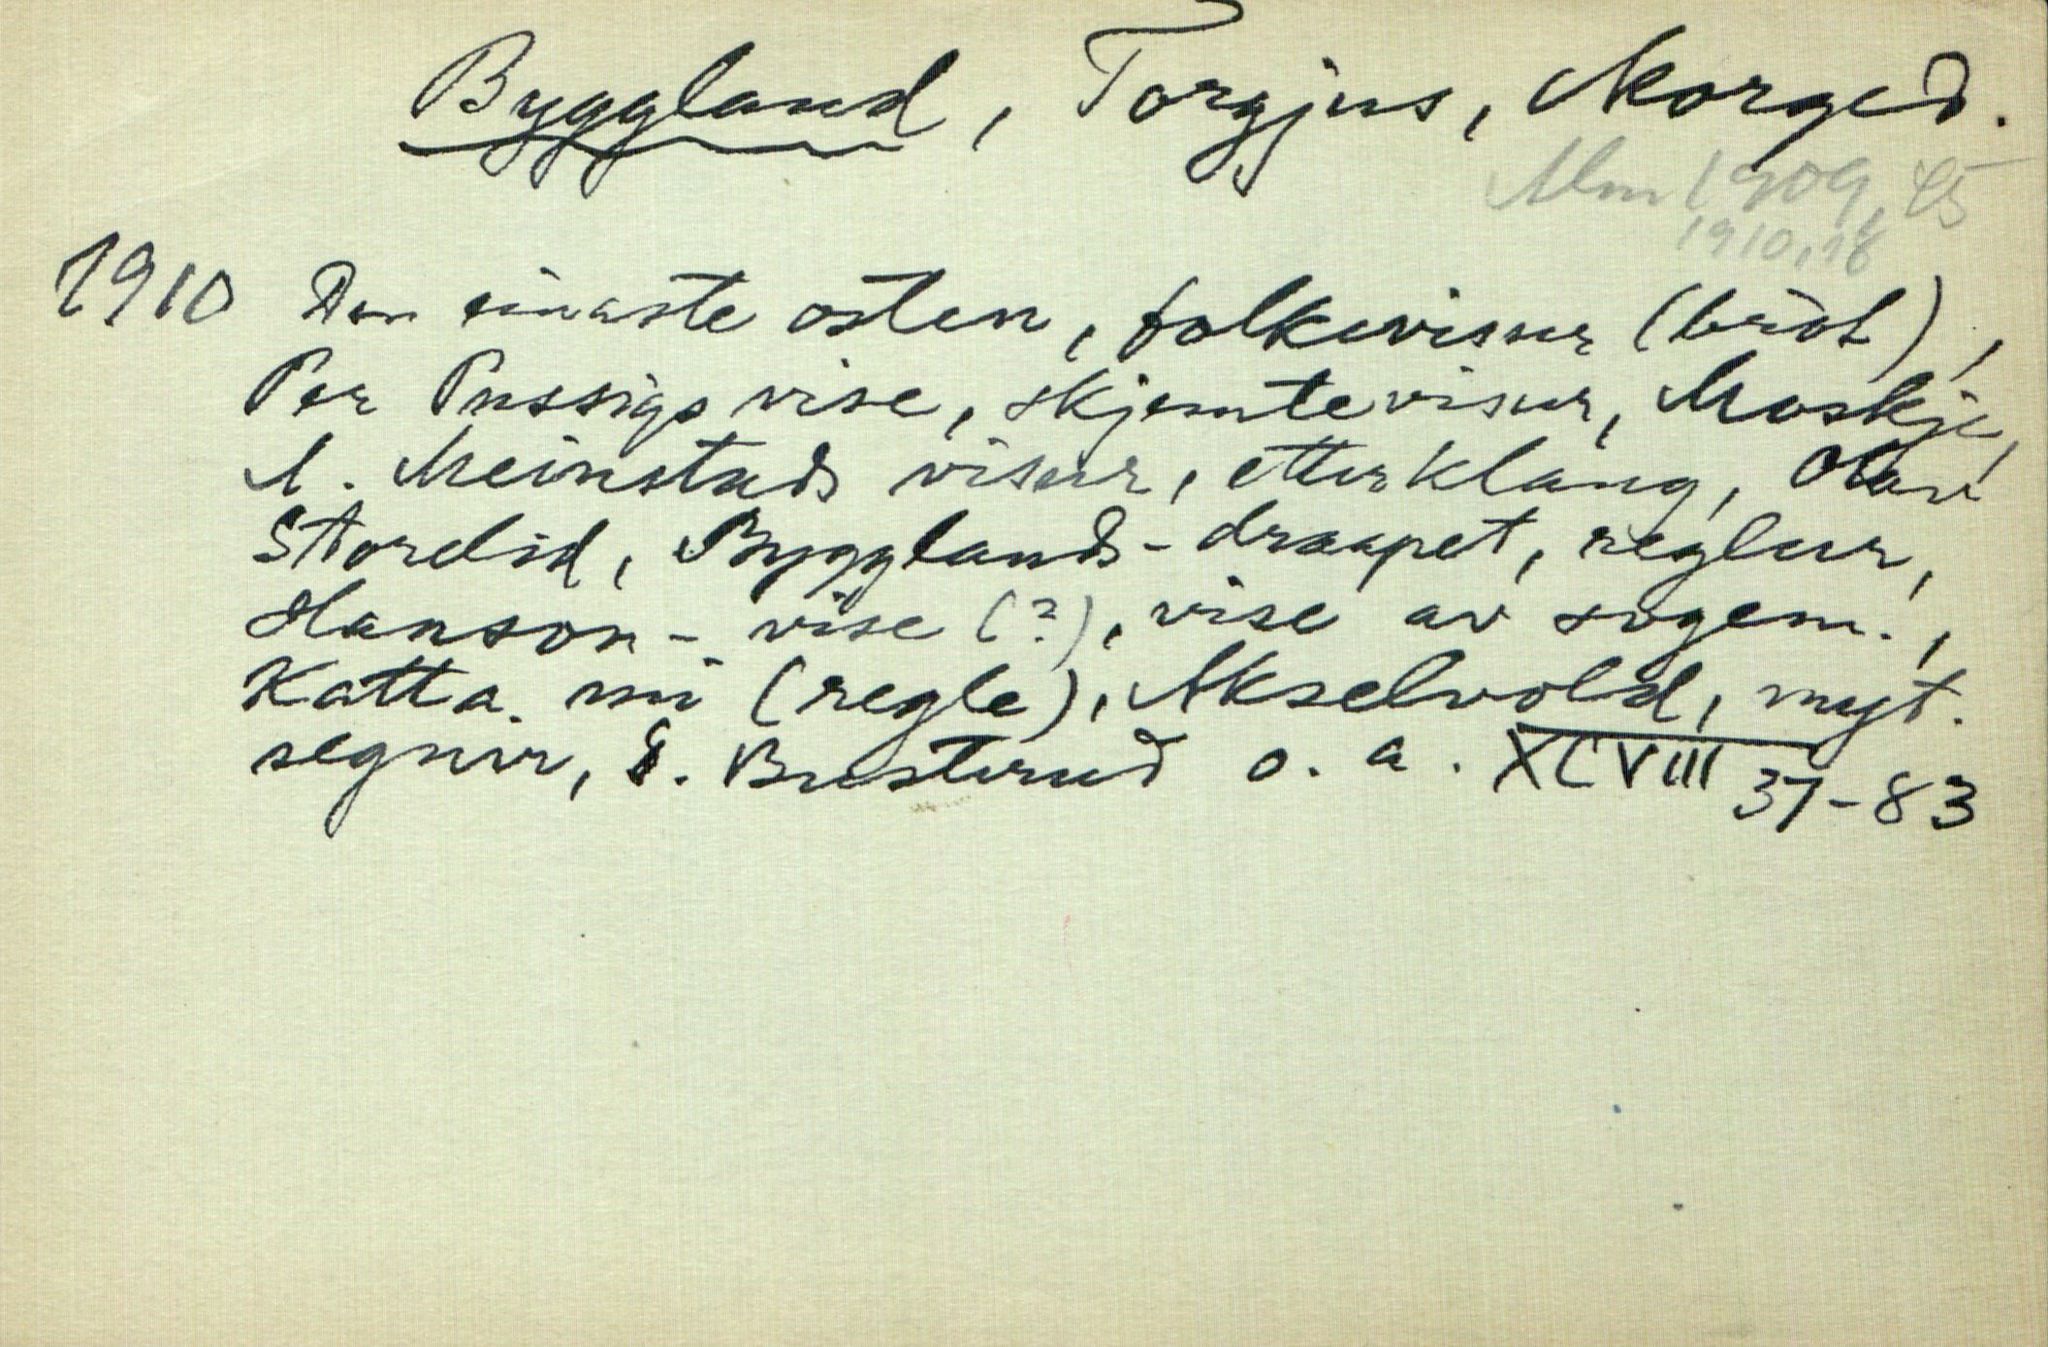 Byggland, Torgjus, Morged.
Mm 1909, 45
1910, 18
1910 Den einaste osten, folkevisur (bròt),
Per Pussigs vise, skjemtevisur, Moskje,
A. Meinstads visur, etterklang, Olav
Stordid, Bygglands-draapet, reglur,
Hanson-vise (?), vise av sogem.,
Katta mi (regle), Akselvold, myt.
segnir, S. Busterud o. a. XCVIII 37-83